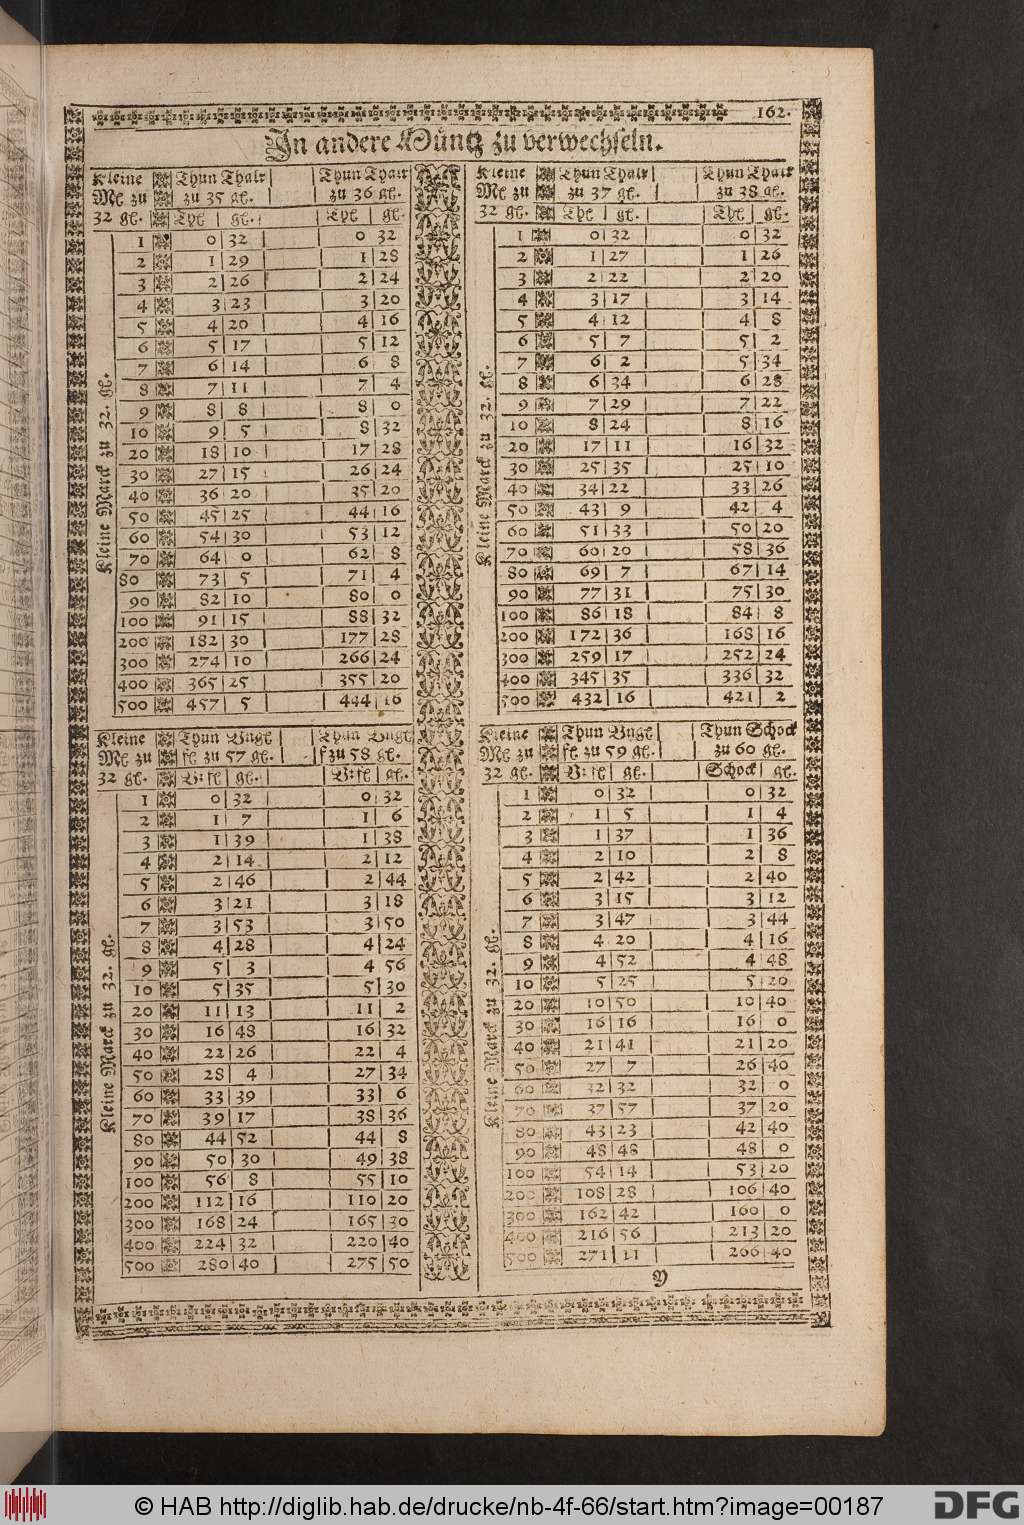 162.
In andere Müntz zu verwechseln.
Kleine Thun Thalr Thun Thalr
Mk zu zu 35 gl. zu 36 gl.
32 gl. Thl gl. Thl gl.
Kleine Marck zu 32. gl.
1 0 32 0 32
2 1 29 1 28
3 2 26 2 24
4 3 23 3 20
5 4 20 4 16
6 5 17 5 12
7 6 14 6 8
8 7 11 7 4
9 8 8 8 0
10 9 5 8 32
20 18 10 17 28
30 27 15 26 24
40 36 20 35 20
50 45 25 44 16
60 54 30 53 12
70 64 0 62 8
80 73 5 71 4
90 82 10 80 0
100 91 15 88 32
200 182 30 177 28
300 274 10 266 24
400 365 25 355 20
500 457 5 444 16
Kleine Thun Thalr Thun Thalr
Mk zu zu 37 gl. zu 38 gl.
32 gl. Thl gl. Thl gl.
Kleine Marck zu 32. gl.
1 0 32 0 32
2 1 27 1 26
3 2 22 2 20
4 3 17 3 14
5 4 12 4 8
6 5 7 5 2
7 6 2 5 34
8 6 34 6 28
9 7 29 7 22
10 8 24 8 16
20 17 11 16 32
30 25 35 25 10
40 34 22 33 26
50 43 9 42 4
60 51 33 50 20
70 60 20 58 36
80 69 7 67 14
90 77 31 75 30
100 86 18 84 8
200 172 36 168 16
300 259 17 252 24
400 345 35 336 32
500 432 16 421 2
Kleine Thun Vngl Thun Vngl
Mk zu fl zu 57 gl. fl zu 58 gl.
32 gl. V: fl gl. V: fl gl.
Kleine Marck zu 32. gl.
1 0 32 0 32
2 1 7 1 6
3 1 39 1 38
4 2 14 2 12
5 2 46 2 44
6 3 21 3 18
7 3 53 3 50
8 4 28 4 24
9 5 3 4 56
10 5 35 5 30
20 11 13 11 2
30 16 48 16 32
40 22 26 22 4
50 28 4 27 34
60 33 39 33 6
70 39 17 38 36
80 44 52 44 8
90 50 30 49 38
100 56 8 55 10
200 112 16 110 20
300 168 24 165 30
400 224 32 220 40
500 280 40 275 50
Kleine Thun Vngl Thun Schock
Mk zu fl zu 59 gl. zu 60 gl.
32 gl. V: fl gl. Schock gl.
Kleine Marck zu 32. gl.
1 0 32 0 32
2 1 5 1 4
3 1 37 1 36
4 2 10 2 8
5 2 42 2 40
6 3 15 3 12
7 3 47 3 44
8 4 20 4 16
9 4 52 4 48
10 5 25 5 20
20 10 50 10 40
30 16 16 16 0
40 21 41 21 20
50 27 7 26 40
60 32 32 32 0
70 37 57 37 20
80 43 23 42 40
90 48 48 48 0
100 54 14 53 20
200 108 28 106 40
300 162 42 160 0
400 216 56 213 20
500 271 11 266 40
Y
© HAB http://diglib.hab.de/drucke/nb-4f-66/start.htm?image=00187
DFG